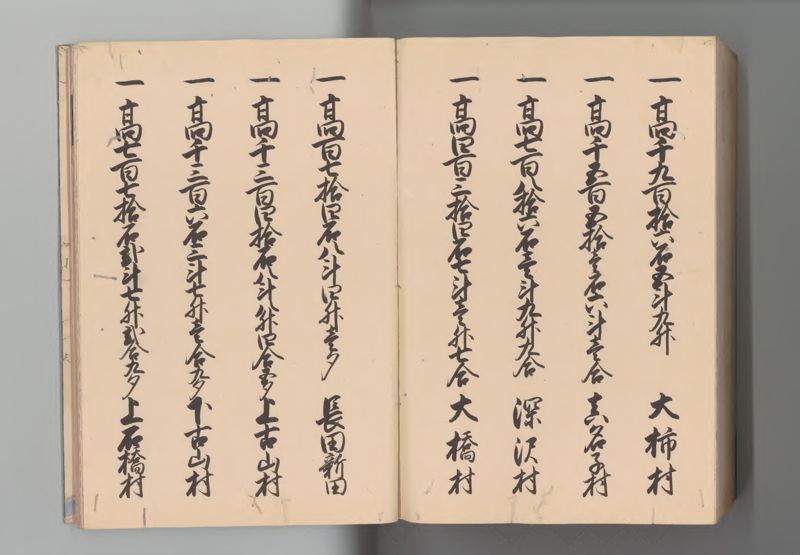 一 高千九百拾六石五斗九升 大柿村
一 高千五百五拾壱石六斗壱合 真名子村
一 高七百八拾六石壱斗九升九合 深沢村
一 高四百三拾四石七斗壱升七合 大橋村
一 高百七拾四石八斗四升壱夕 長田新田
一 高千三百四拾石八斗八升四合五夕 上古山村
一 高千三百六石三斗七升壱合九夕 下古山村
一 高七百七拾石弐斗七升弐合九夕 上石橋村